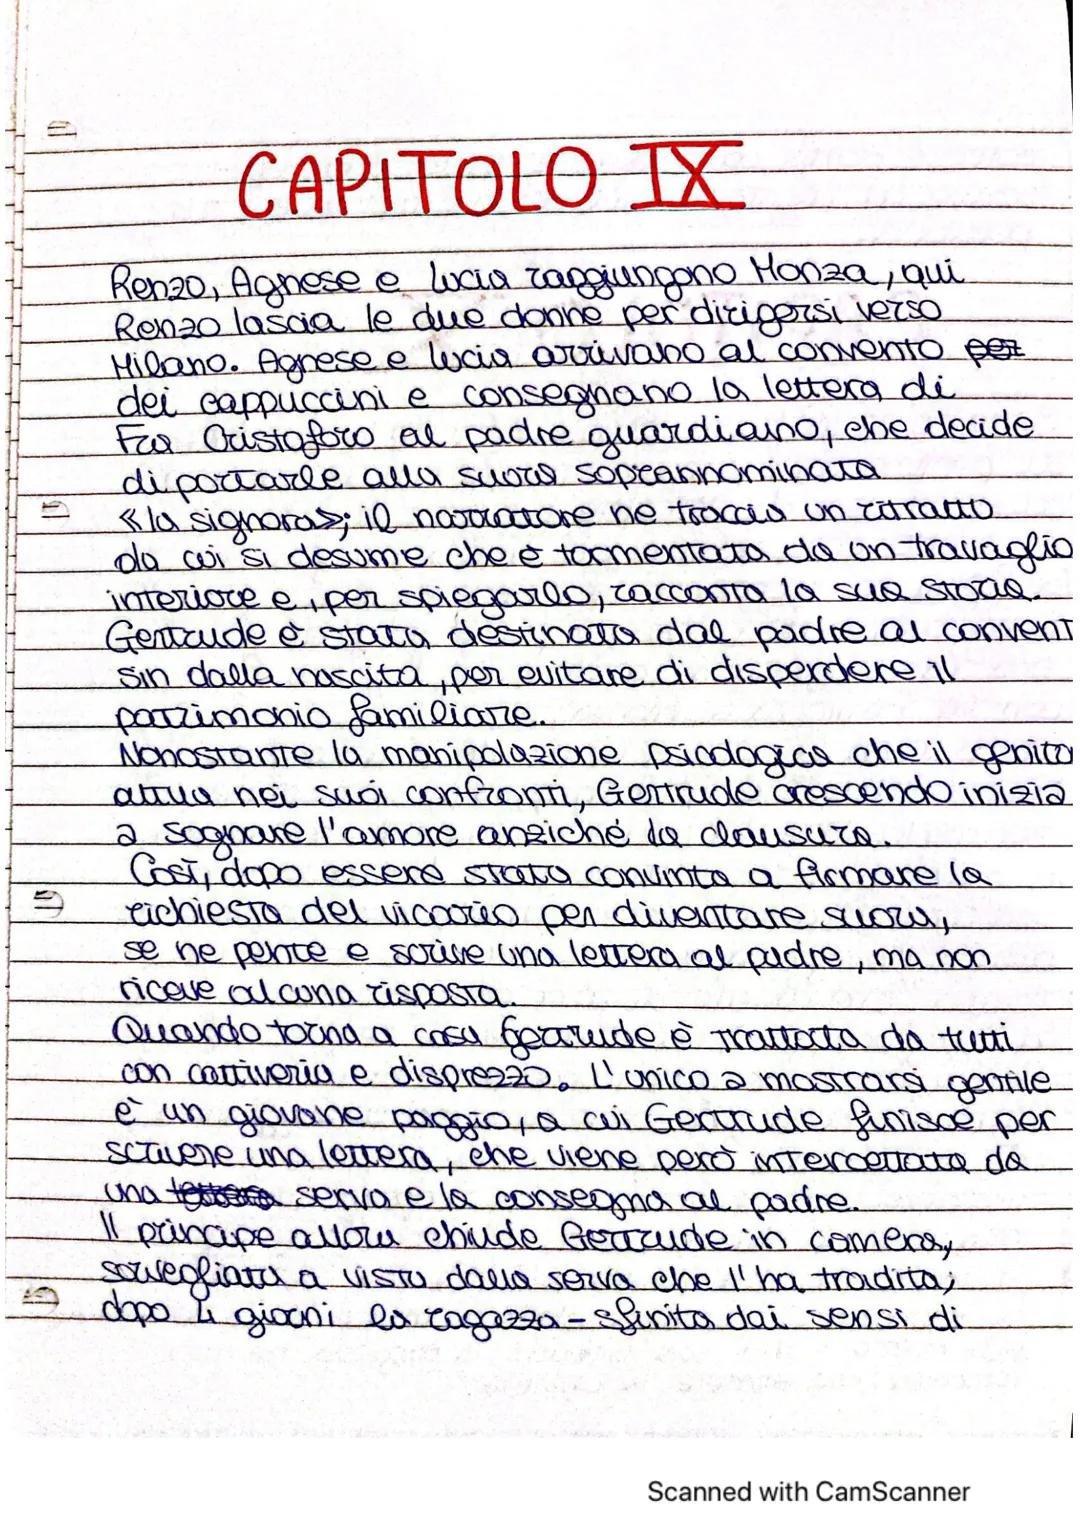 CAPITOLO IX
Renzo, Agnese e Lucia raggiungono Monza, qui
Renzo lascia le due donne per dirigersi verso
Milano. Agnese e Lucia arrivano al convento per
dei cappuccini e consegnano la lettera di
Fra Cristoforo al padre guardiano, che decide
di portarle alla suora soprannominata
«la signora»; il narratore ne traccia un ritratto
da cui si desume che è tormentata da un travaglio
interiore e, per spiegarlo, racconta la sua storia.
Gertrude è stata destinata dal padre al convent
sin dalla nascita, per evitare di disperdere il
patrimonio familiare.
Nonostante la manipolazione psicologica che il genito
attua nei suoi confronti, Gertrude crescendo inizia
a sognare l'amore anziché la clausura.
Così, dopo essere stata convinta a firmare la
richiesta del vicario per diventare suora,
se ne pente e scrive una lettera al padre, ma non
riceve alcuna risposta.
Quando torna a casa Gertrude è trattata da tutti
con cattiveria e disprezzo. L'unico a mostrarsi gentile
è un giovane paggio, a cui Gertrude finisce per
scrivere una lettera, che viene però intercettata da
una lettera serva e la consegna al padre.
Il principe allora chiude Gertrude in camera,
sorvegliata a vista dalla serva che l'ha tradita;
dopo 4 giorni la ragazza - sfinita dai sensi di
Scanned with CamScanner